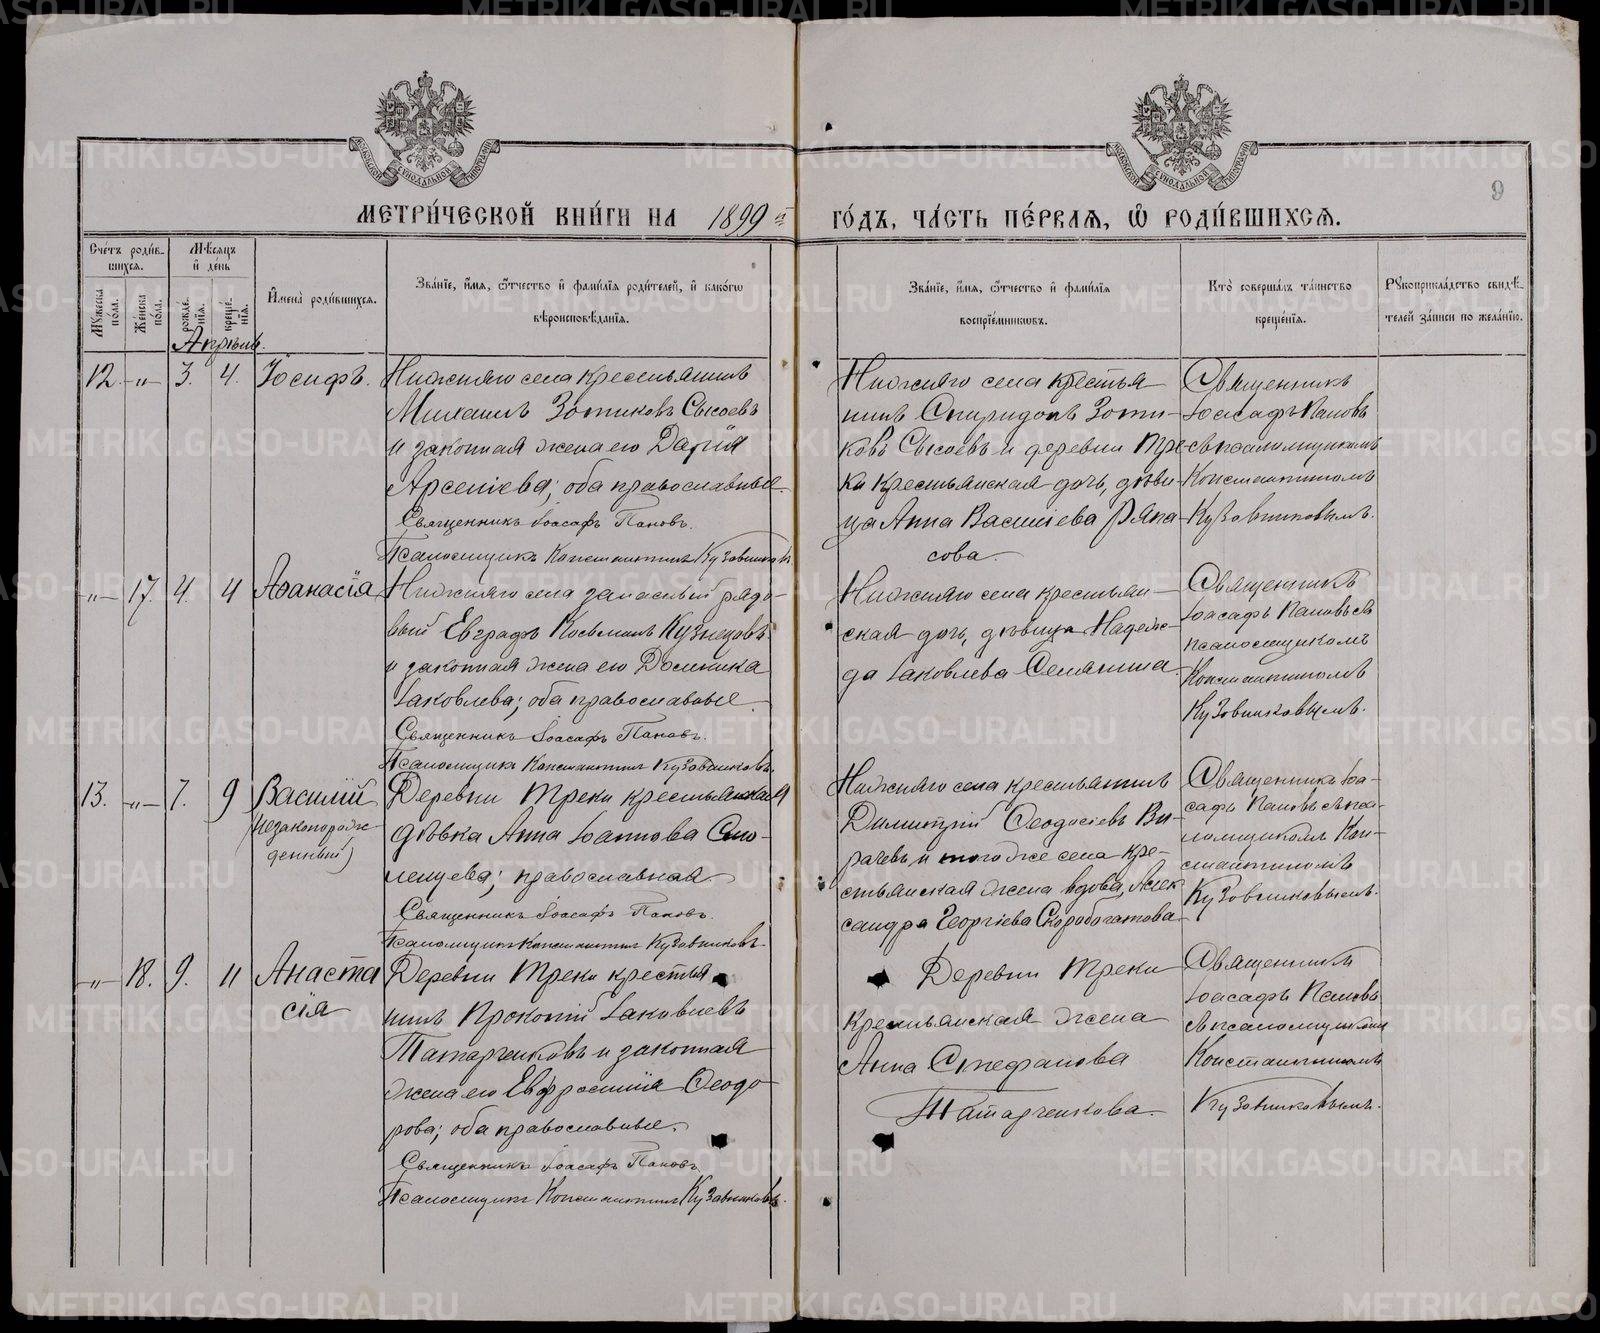 МЕТРИ́ЧЕСКОЙ КНИ́ГИ НА 1899й ГО́ДЪ, ЧА́СТЬ ПЕ́РВАЯ, Ѽ РОДИ́ВШИХСЯ.
9
Сче́тъ роди́в-
шихся.
Мѣ́сяцъ
и́ де́нь
Му́жеска
по́ла.
Же́нска
по́ла.
рожде́-
нія.
креще́-
нія.
И́мена̀ роди́вшихся.
Зва́ніе, и́мя, ѻ́тчество и́ фами́лія роди́телей, и́ како́гѡ
вѣроисповѣ́данія.
Зва́ніе, и́мя, ѻ́тчество и́ фами́лія
воспріе́мниковъ.
Кто̀ соверша́лъ та́инство
креще́нія.
Рꙋкоприкла́дство свидѣ́-
телей за́писи по жела́нію.
Апрѣль.
12. -"- 3. 4. Іосифъ.
Нижняго села крестьянинъ
Михаилъ Зотиковъ Сысоевъ
и законная жена его Дарія
Арсеніева; оба православные.
Священникъ Іоасафъ Пановъ.
Псаломщикъ Константинъ Кузовниковъ
Нижняго села крестья-
нинъ Спиридонъ Зоти-
ковъ Сысоевъ и деревни Тре-
ки крестьянская дочь, дѣви-
ца Анна Василіева Ряпа-
сова.
Священникъ
Іоасафъ Пановъ
съ псаломщикомъ
Константиномъ
Кузовниковымъ.
-"- 17. 4. 4 Аѳанасія
Нижняго села запасный рядо-
вый Евграфъ Косьминъ Кузнецовъ
и законная жена его Домника
Іаковлева; оба православные.
Священникъ Іоасафъ Пановъ.
Псаломщикъ Константинъ Кузовниковъ.
Нижняго села крестьян-
ская дочь, дѣвица Надеж-
да Іаковлева Сенянина.
Священникъ
Іоасафъ Пановъ съ
псаломщикомъ
Константиномъ
Кузовниковымъ.
13. -"- 7. 9 Василій
(незаконорож-
денный)
Деревни Треки крестьянская
дѣвка Анна Іоаннова Сло-
ленцева; православная.
Священникъ Іоасафъ Пановъ.
Псаломщикъ Константинъ Кузовниковъ.
Нижняго села крестьянинъ
Димитрій Ѳеодосіевъ Ви-
рачевъ и того же села кре-
стьянская жена вдова, Алек-
сандра Георгіева Скоробогатова
Священникъ Іоа-
сафъ Пановъ съ пса-
ломщикомъ Кон-
стантиномъ
Кузовниковымъ.
-"- 18. 9. 11 Анаста
сія
Деревни Треки крестья-
нинъ Прокопій Іаковлевъ
Татарченковъ и законная
жена его Евфросинія Ѳеодо-
рова; оба православные.
Священникъ Іоасафъ Пановъ.
Псаломщикъ Константинъ Кузовниковъ.
Деревни Треки
крестьянская жена
Анна Стефанова
Татарченкова.
Священникъ
Іоасафъ Пановъ
съ псаломщикомъ
Константиномъ
Кузовниковымъ.
METRIKI.GASO-URAL.RU